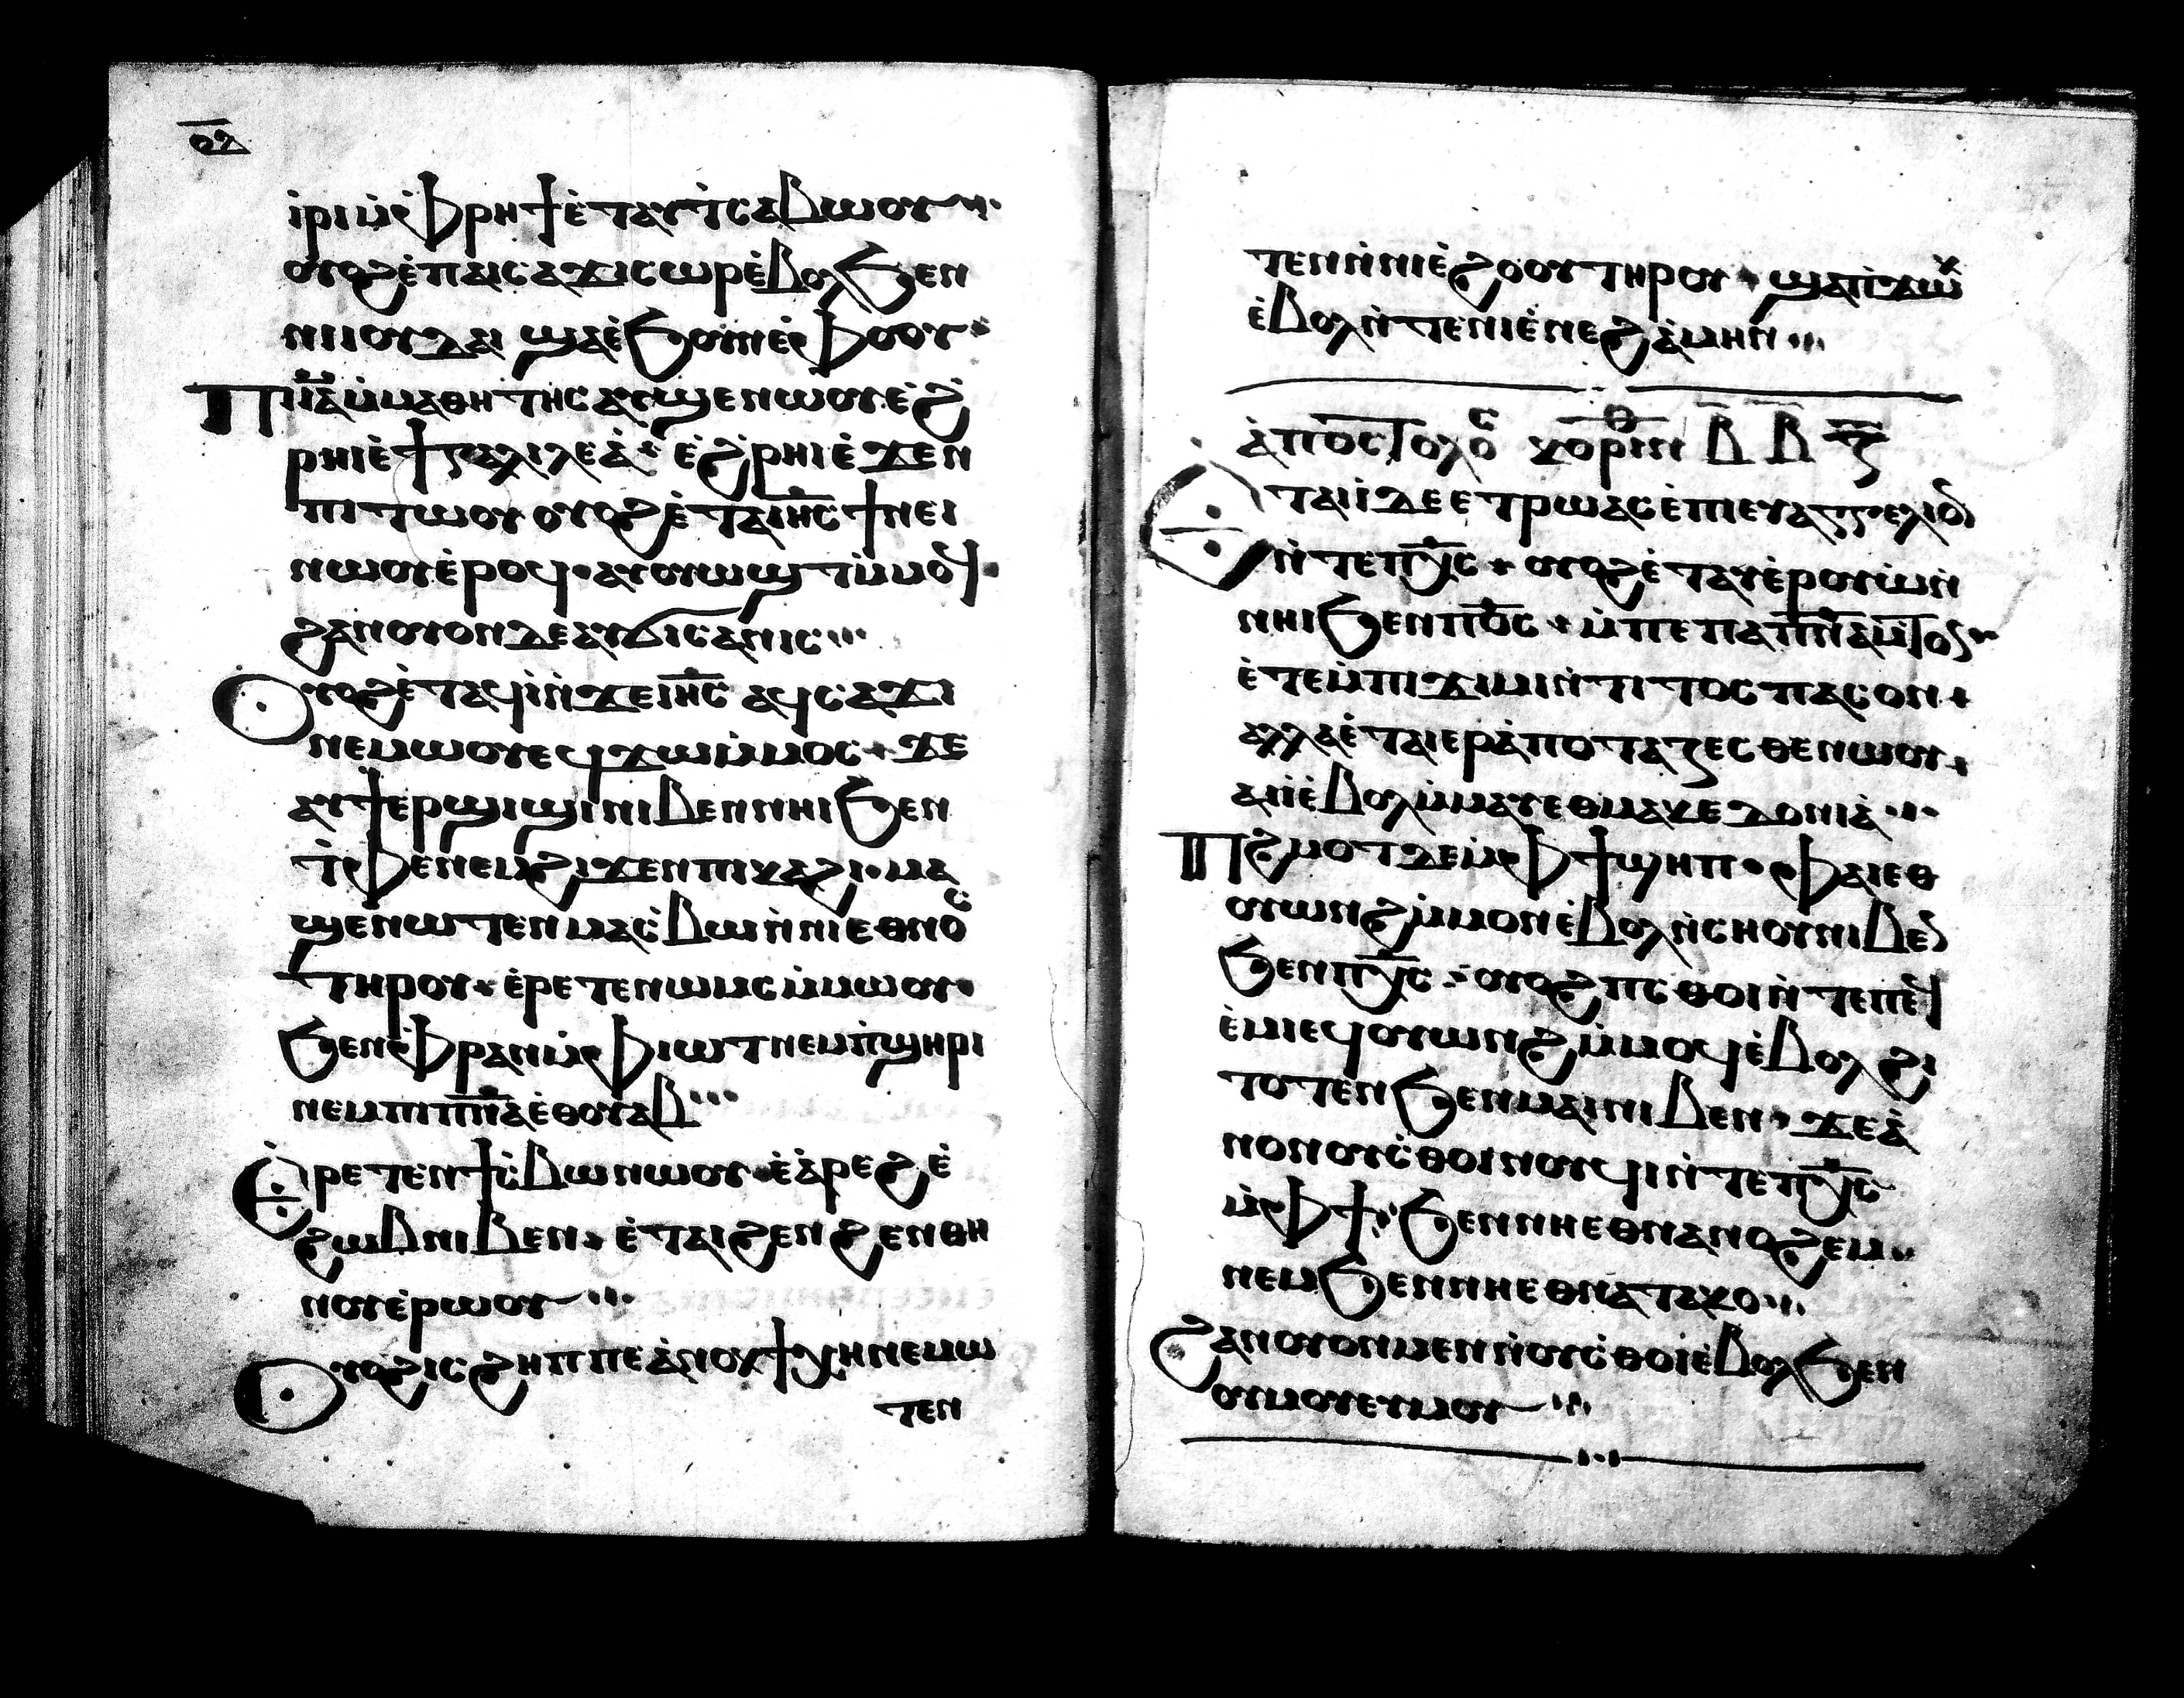 ⲟⲇ
ⲓⲣⲓ ⲙ̀ⲫⲣⲏϯ ⲉ̀ⲧⲁⲩⲧ̀ⲥⲁⲃⲱⲟⲩ
ⲟⲩⲟϩ ⲉ̀ⲡⲁⲓⲥⲁϫⲓ ⲥⲱⲣ ⲉ̀ⲃⲟⲗ ϧⲉⲛ
ⲛⲓⲓⲟⲩⲇⲁⲓ ϣⲁ ⲉ̀ϧⲟⲩⲛ ⲉ̀ⲫⲟⲟⲩ
Ⲡⲓⲓ̅ⲁ̅ ⲙ̀ⲙⲁⲑⲏⲧⲏⲥ ⲁⲩϣⲉⲛⲱⲟⲩ ⲉ̀ϩ̀
ⲣⲏⲓ ⲉ̀ϯⲅⲁⲗⲓⲗⲉⲁ̀ ⲉ̀ϩ̀ⲣⲏⲓ ⲉ̀ϫⲉⲛ
ⲡⲓⲧⲱⲟⲩ ⲟⲩⲟϩ ⲉ̀ⲧⲁ ⲓⲏ̅ⲥ̅ ϯⲛⲉⲓ
ⲛⲱⲟⲩ ⲉ̀ⲣⲟϥ ⲁⲩⲟⲩⲱϣⲧ ⲙ̀ⲙⲟϥ
ϩⲁⲛⲟⲩⲟⲛ ⲇⲉ ⲁⲩϭⲓⲥⲁⲛⲓⲥ
Ⲟⲩⲟϩ ⲉ̀ⲧⲁϥⲓ̀ ⲛ̀ϫⲉ ⲓⲏ̅ⲥ̅ ⲁϥⲥⲁϫⲓ
ⲛⲉⲙⲱⲟⲩ ⲉϥϫⲱ ⲙ̀ⲙⲟⲥ ϫⲉ
ⲁⲩϯ ⲉⲣϣⲓϣⲓ ⲛⲓⲃⲉⲛ ⲛⲏⲓ ϧⲉⲛ
ⲧ̀ⲫⲉ ⲛⲉⲙ ϩⲓϫⲉⲛ ⲡⲓⲕⲁϩⲓ ⲙⲁ
ϣⲉⲛⲱⲧⲉⲛ ⲙⲁⲥ̀ⲃⲱ ⲛ̀ⲛⲓⲉⲑⲛⲟⲥ
ⲧⲏⲣⲟⲩ ⲉ̀ⲣⲉⲧⲉⲛⲱⲙⲥ ⲙ̀ⲙⲱⲟⲩ
ϧⲉⲛ ⲫ̀ⲣⲁⲛ ⲙ̀ⲫⲓⲱⲧ ⲛⲉⲙ ⲡ̀ϣⲏⲣⲓ
ⲛⲉⲙ ⲡⲓⲡ̅ⲛ̅ⲁ̅ ⲉ̀ⲑⲟⲩⲁⲃ
Ⲉ̀ⲣⲉⲧⲉⲛϯⲥ̀ⲃⲱ ⲛⲱⲟⲩ ⲉ̀ⲁ̀ⲣⲉϩ ⲉ̀
ϩⲱⲃ ⲛⲓⲃⲉⲛ ⲉ̀ⲧⲁⲓϩⲉⲛϩⲉⲛⲑⲏ
ⲛⲟⲩ ⲉ̀ⲣⲱⲟⲩ
Ⲟⲩⲟϩ ⲓⲥ ϩⲏⲡⲡⲉ ⲁ̀ⲛⲟⲕ ϯⲭⲏ ⲛⲉⲙⲱ
ⲧⲉⲛ
ⲧⲉⲛ ⲛ̀ⲛⲓⲉ̀ϩⲟⲟⲩ ⲧⲏⲣⲟⲩ ϣⲁ ⲡ̀ϫⲱⲕ
ⲉ̀ⲃⲟⲗ ⲛ̀ⲧⲉ ⲛⲓⲉ̀ⲛⲉϩ ⲁ̀ⲙⲏⲛ
ⲁ̀ⲡⲟⲥⲧⲟⲗⲟⲥ ⲕⲟⲣⲓⲛⲑ ⲃ̅ ⲃ̅
Ⲉⲧⲁⲓⲓ̀ ⲇⲉ ⲉⲧⲣⲱⲁⲥ ⲉ̀ⲡⲓⲉⲩⲁⲅⲅⲉⲗⲓⲟⲛ
ⲛ̀ⲧⲉ ⲡⲭ̅ⲥ̅ ⲟⲩⲟϩ ⲉ̀ⲧⲁⲩⲉ̀ⲣⲟⲩⲱ̀ⲛ
ⲛⲏⲓ ϧⲉⲛ ⲡⲟ̅ⲥ̅ ⲙ̀ⲡⲉ ⲡⲁⲡ̅ⲛ̅ⲁ̅ ⲙ̀ⲧⲟⲛ
ⲉ̀ⲧⲉⲙ̀ⲡⲓϫⲓⲙⲓ ⲛ̀ⲧⲓⲧⲟⲥ ⲡⲁⲥⲟⲛ
ⲁⲗⲗⲁ ⲉ̀ⲧⲁⲓⲉⲣⲁ̀ⲡⲟⲧⲁⲍⲉⲥⲑⲉ ⲛⲱⲟⲩ
ⲁⲓⲓ̀ ⲉ̀ⲃⲟⲗ ⲙ̀ⲙⲁⲩ ⲉⲑⲙⲁⲕⲉⲇⲟⲛⲓⲁ̀
Ⲡϩⲙⲟⲧ ⲇⲉ ⲙ̀ⲫϯ ϣⲏⲡ ⲫⲁⲓ ⲉⲑ
ⲟⲩⲱⲛϩ ⲙ̀ⲙⲟⲛ ⲉ̀ⲃⲟⲗ ⲛ̀ⲥⲏⲟⲩ ⲛⲓⲃⲉⲛ
ϧⲉⲛ ⲡⲭ̅ⲥ̅ ⲟⲩⲟϩ ⲡⲥⲑⲟⲓ ⲛ̀ⲧⲉ ⲡⲉϥ
ⲉ̀ⲙⲓ ⲉϥⲟⲩⲱⲛϩ ⲙ̀ⲙⲟϥ ⲉ̀ⲃⲟⲗ ϩⲓ
ⲧⲟⲧⲉⲛ ϧⲉⲛ ⲙⲁⲓ ⲛⲓⲃⲉⲛ ϫⲉ ⲁ̀
ⲛⲟⲛ ⲟⲩⲥ̀ⲑⲟⲓⲛⲟⲩϥⲓ ⲛ̀ⲧⲉ ⲡⲭ̅ⲥ̅
ⲙ̀ⲫϯ ϧⲉⲛ ⲛⲏ ⲉⲑⲛⲁⲛⲟϩⲉⲙ
ⲛⲉⲙ ϧⲉⲛ ⲛⲏ ⲉⲑⲛⲁⲧⲁⲕⲟ
Ϩⲁⲛⲟⲩⲟⲛ ⲙⲉⲛ ⲛ̀ⲟⲩⲥ̀ⲑⲟⲓ ⲉ̀ⲃⲟⲗ ϧⲉⲛ
ⲟⲩⲙⲟⲩ ⲉⲩⲙⲟⲩ